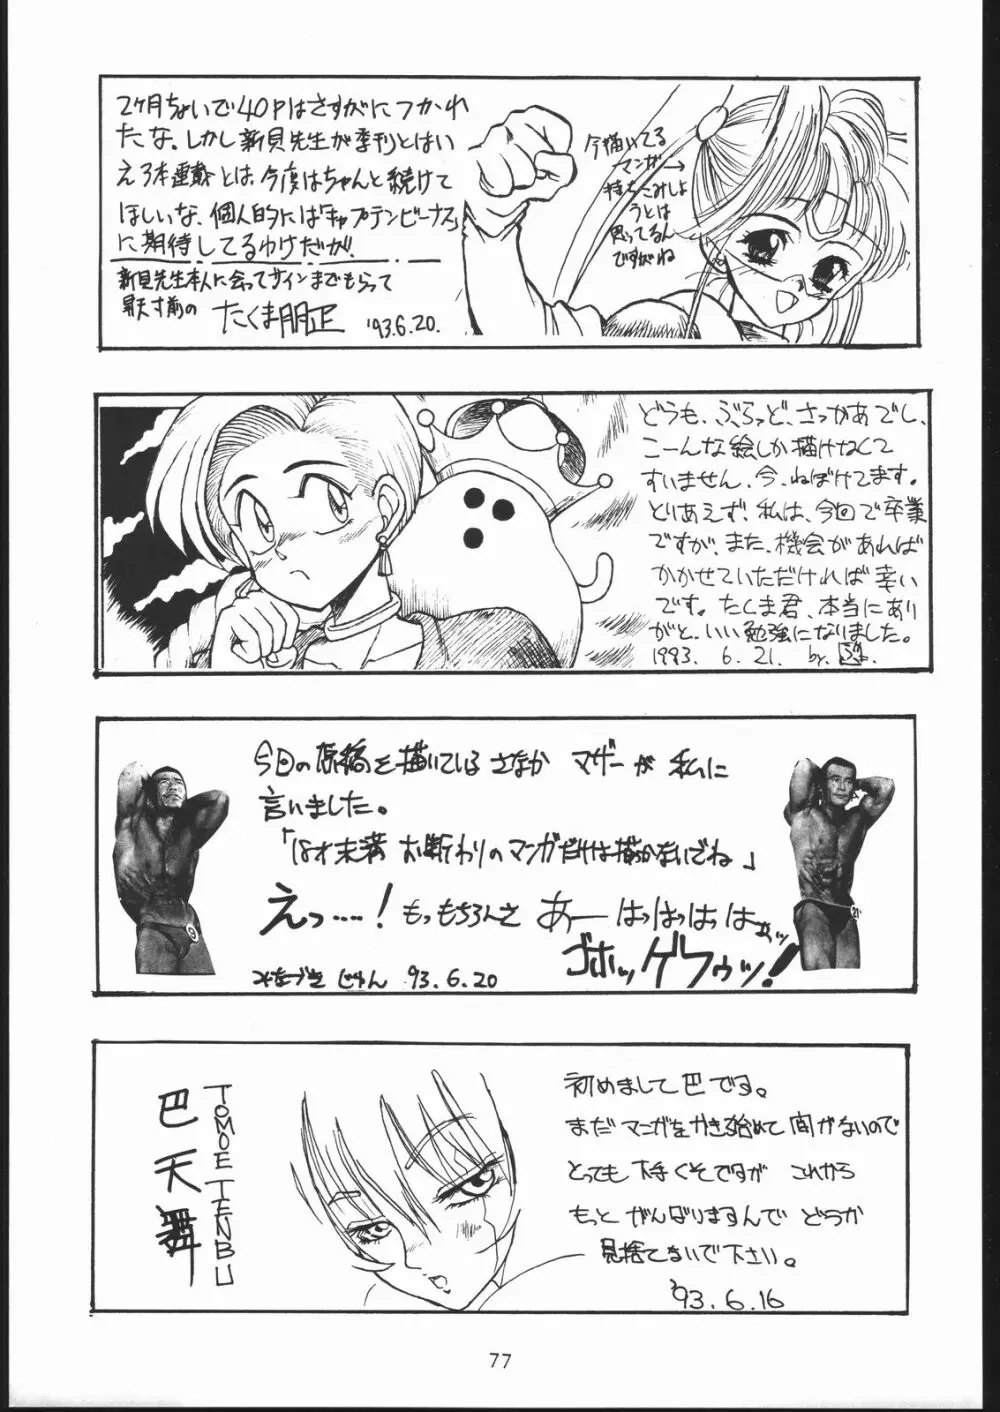 2ヶ月ちょいで40Pはさすがにつかれ
たな。しかし新貝先生が季刊とはい
え3本連載とは、今度はちゃんと続けて
ほしいな、個人的には「キャプテンビーナス」
に期待してるわけだが。
新貝先生本人に会ってサインまでもらって
昇天寸前の たくま朋正 '93.6.20.
今描いてる
マンガ→
持ちこみしよ
うとは
思ってるん
ですがね
どうも、ぶらっど、さっかあでし、
こーんな絵しか描けなくて
すいません、今、ねぼけてます。
とりあえず、私は、今回で卒業
ですが、また、機会があれば
かかせていただければ幸い
です。たくま君、本当にあり
がと、いい勉強になりました。
1993. 6. 21. by.
今回の原稿を描いているさなか マザーが 私に
言いました。
「18才未満 お断わりのマンガだけは描かないでね」
えっ……! もっもちろんさ あーはっはっはっは
ゴホッゲフゥッ!
みなづき じゅん 93.6.20
巴天舞
TOMOE TENBU
初めまして巴です。
まだマンガをかき始めて間がないので
とっても下手くそですが これから
もっと がんばりますんで どうか
見捨てないで下さい。
'93.6.16
77